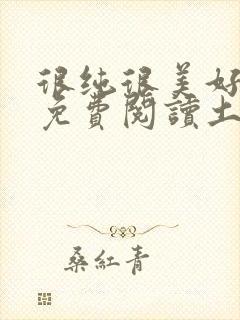 很纯很美好
免費閱讀土
桑紅青